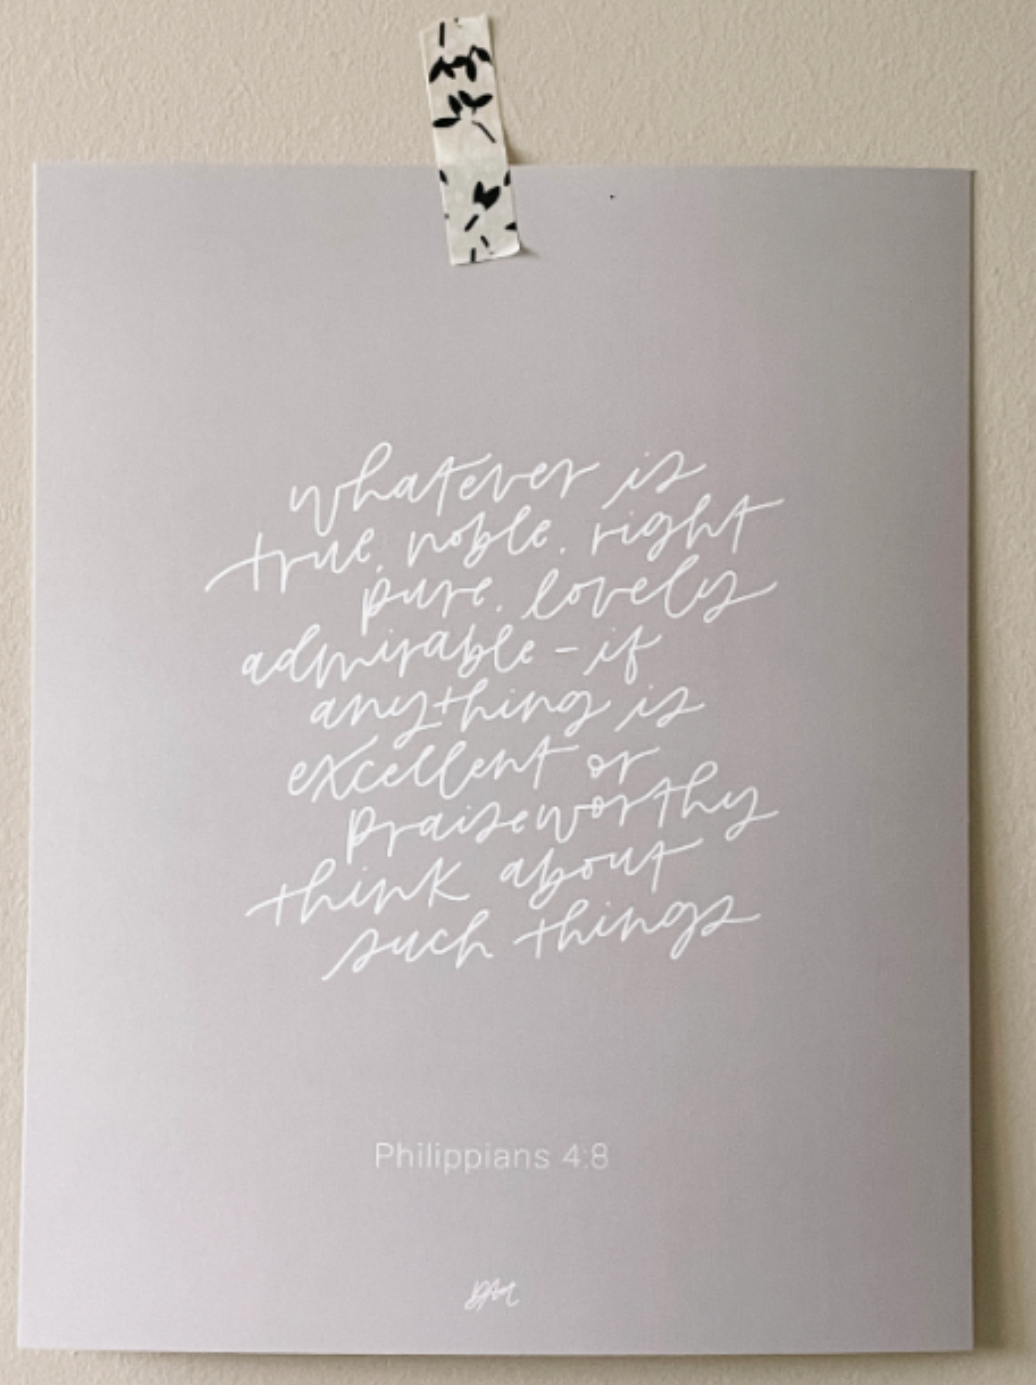 whatever is
true, noble, right
pure, lovely
admirable - if
anything is
excellent or
praiseworthy
think about
such things
Philippians 4:8